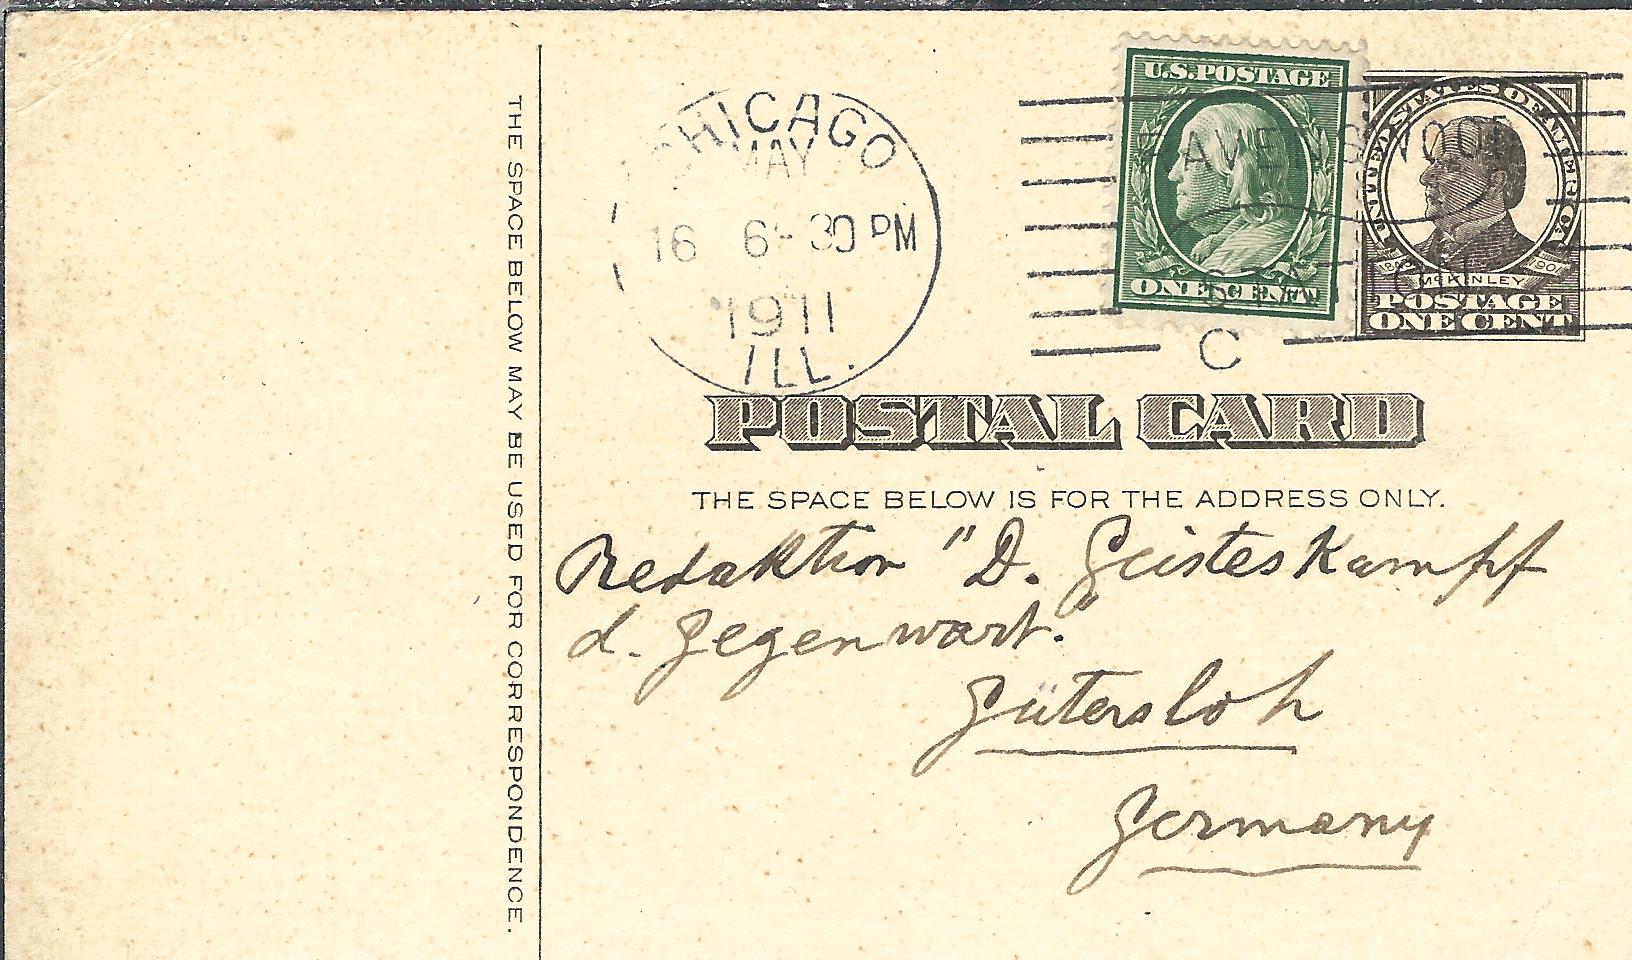 THE SPACE BELOW MAY BE USED FOR CORRESPONDENCE.
CHICAGO
MAY
16 6 - 30 PM
1911
ILL.
U.S.POSTAGE
ONE CENT
UNITED STATES OF AMERICA
1843 McKINLEY 1901
POSTAGE
ONE CENT
STATION
C
POSTAL CARD
THE SPACE BELOW IS FOR THE ADDRESS ONLY.
Redaktion "D. Geisteskampf
d. Gegenwart."
Gütersloh
Germany